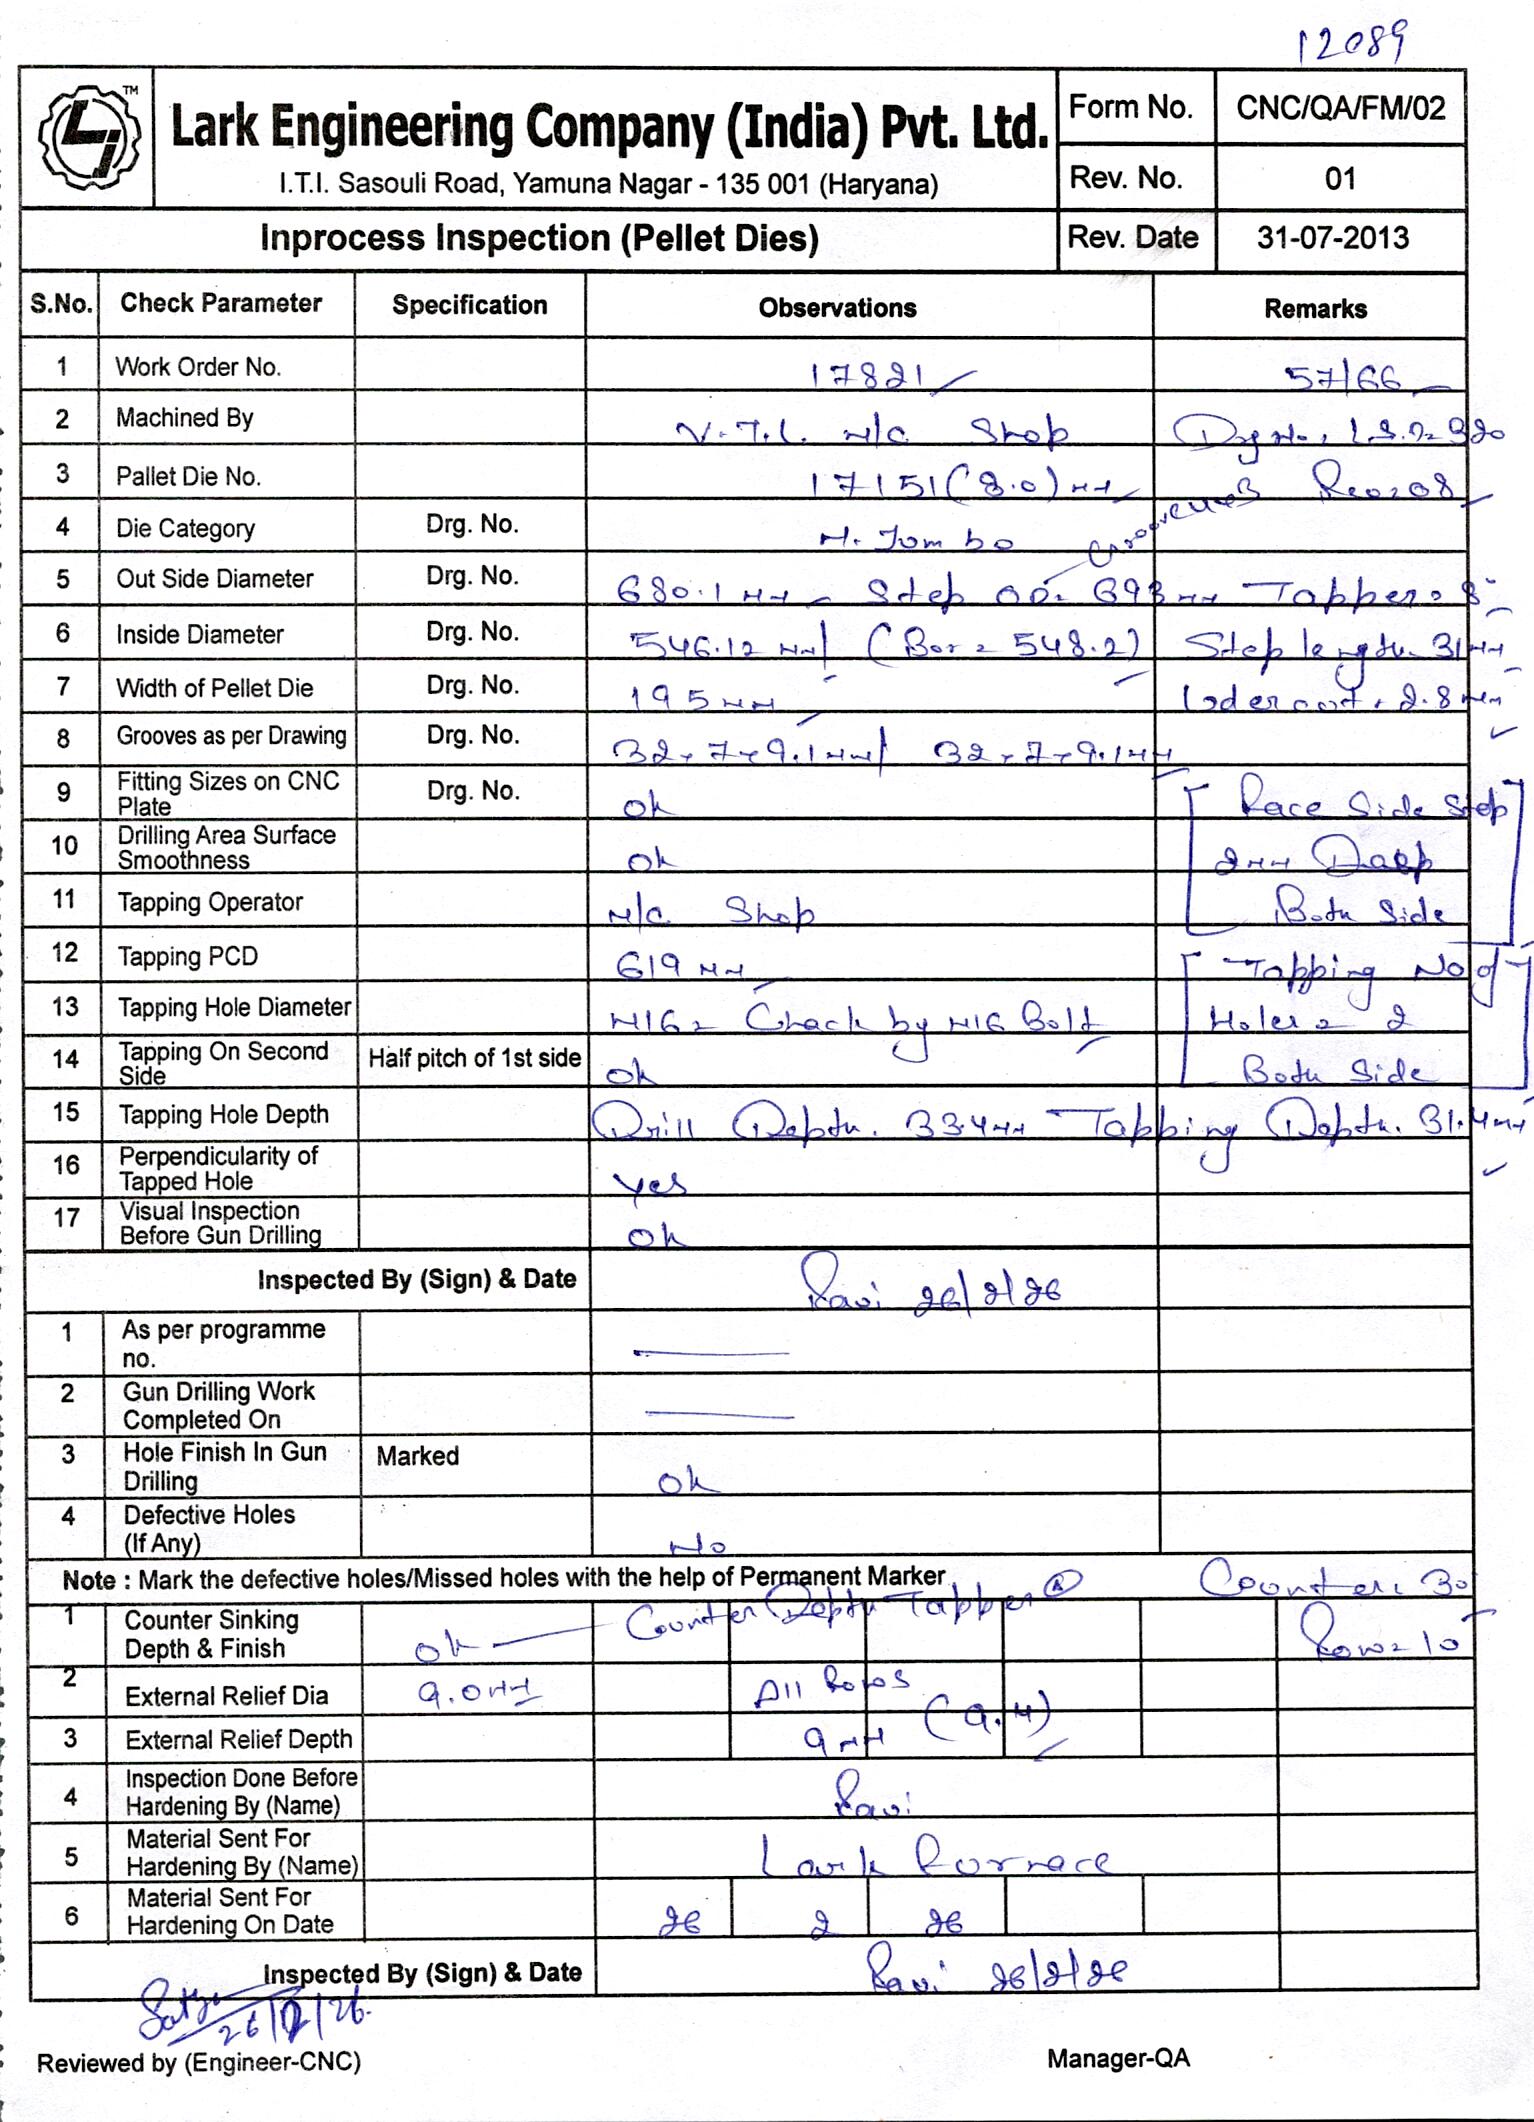 12089
Lark Engineering Company (India) Pvt. Ltd.
I.T.I. Sasouli Road, Yamuna Nagar - 135 001 (Haryana)
Form No. CNC/QA/FM/02
Rev. No. 01
Inprocess Inspection (Pellet Dies) Rev. Date 31-07-2013
S.No. Check Parameter Specification Observations Remarks
1 Work Order No. 17821 57/66
2 Machined By V.T.L. M/C Shop Drg No.
3 Pallet Die No. 17151 (8.0) MM Rev 08
4 Die Category Drg. No. M. Jumbo
5 Out Side Diameter Drg. No. 680.1 MM Step OD = 693 MM Tapper = 8°
6 Inside Diameter Drg. No. 546.12 MM (Bor = 548.2) Step length 31 MM
7 Width of Pellet Die Drg. No. 195 MM Undercut 2.8 MM
8 Grooves as per Drawing Drg. No. 32 x 7 x 9.1 MM / 32 x 7 x 9.1 MM
9 Fitting Sizes on CNC Plate Drg. No. Ok Face Side Step
10 Drilling Area Surface Smoothness Ok 2 MM Deep
11 Tapping Operator M/C Shop Both Side
12 Tapping PCD 619 MM Tapping No of
13 Tapping Hole Diameter M16 = Check by M16 Bolt Holes = 2
14 Tapping On Second Side Half pitch of 1st side Ok Both Side
15 Tapping Hole Depth Drill Depth. 33.4 MM Tapping Depth. 31.4 MM
16 Perpendicularity of Tapped Hole Yes
17 Visual Inspection Before Gun Drilling Ok
Inspected By (Sign) & Date Ravi 26/2/26
1 As per programme no.
2 Gun Drilling Work Completed On
3 Hole Finish In Gun Drilling Marked Ok
4 Defective Holes (If Any) No
Note : Mark the defective holes/Missed holes with the help of Permanent Marker
1 Counter Sinking Depth & Finish Ok Counter Depth Tapper Counter: 30° Row = 10
2 External Relief Dia 9.0 MM All Rows
3 External Relief Depth 9 MM (9.4)
4 Inspection Done Before Hardening By (Name) Ravi
5 Material Sent For Hardening By (Name) Lark Furnace
6 Material Sent For Hardening On Date 26 2 26
Inspected By (Sign) & Date Ravi 26/2/26
Satya 26/2/26.
Reviewed by (Engineer-CNC) Manager-QA